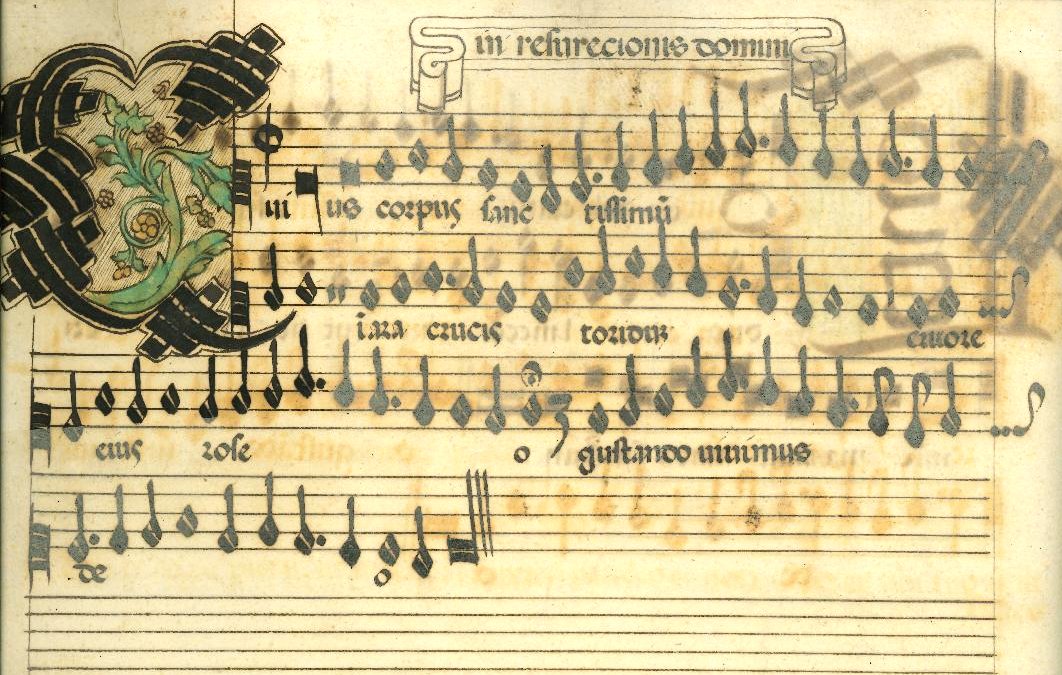 in resurecionis domini
Cui us corpus sanc tissimū
ī ara crucis toridū cruore
eius rose o gustando uiuimus
de o